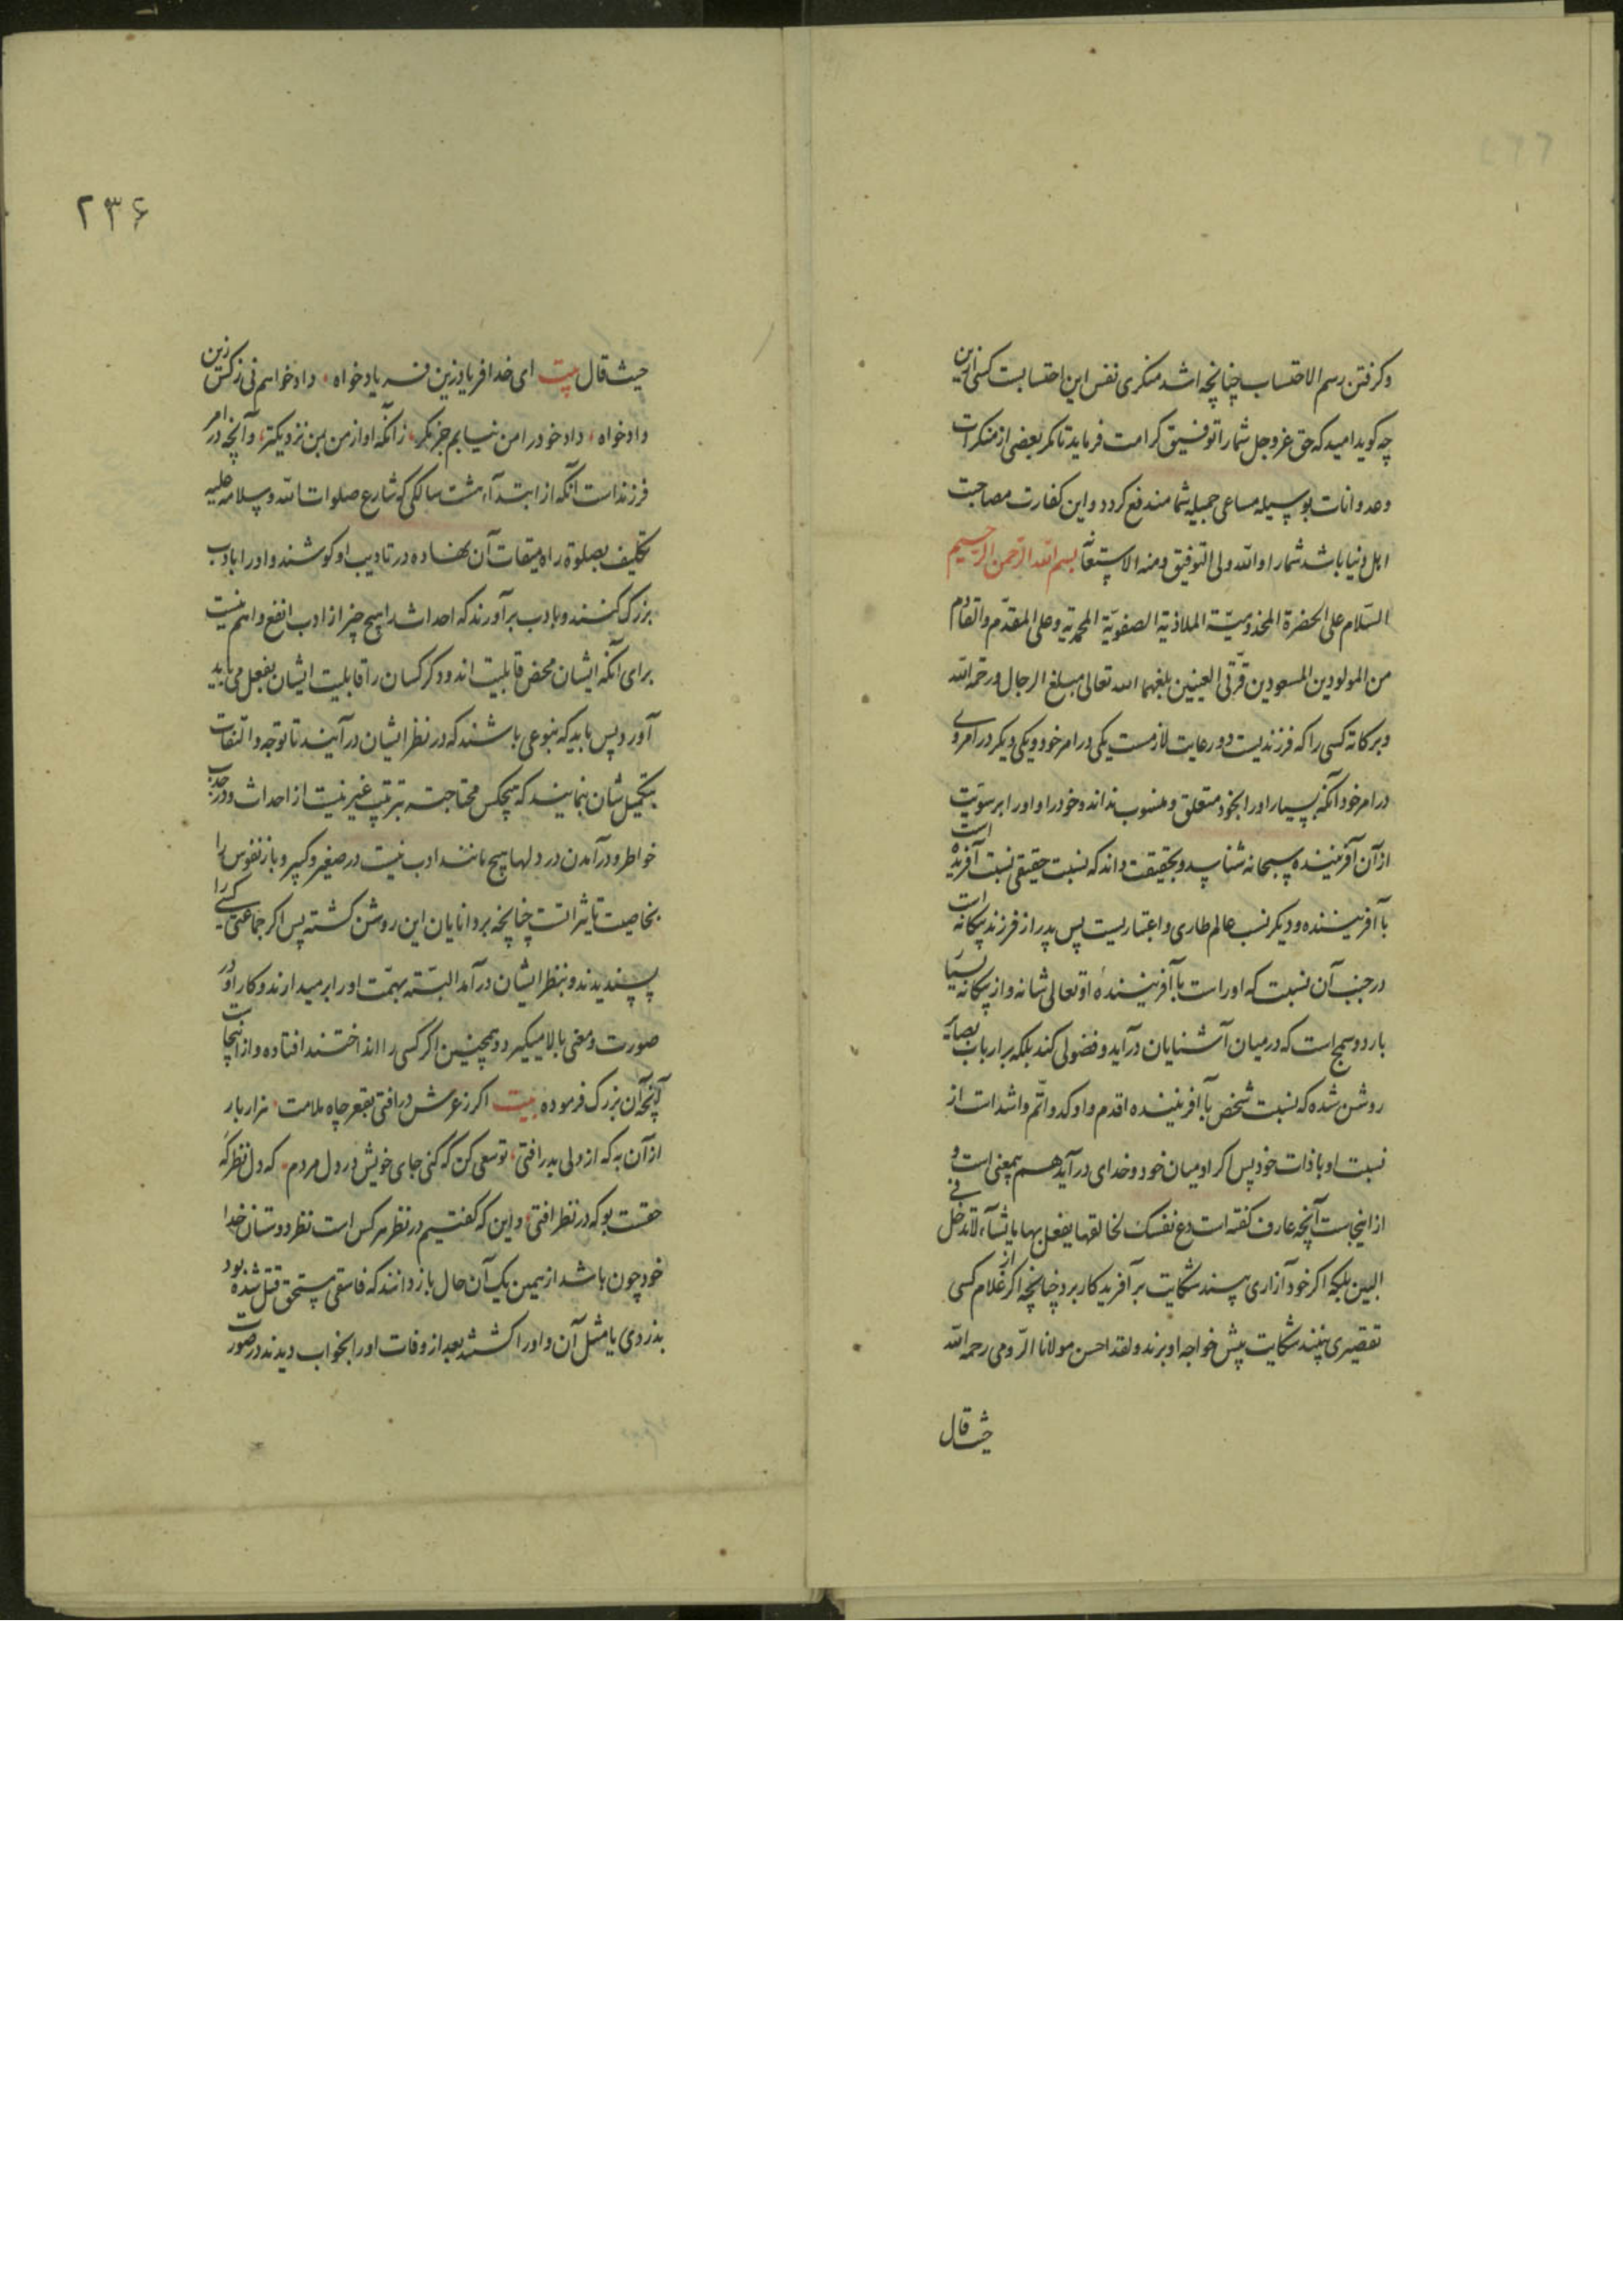 وکرفتن رسم الاحتساب چنانچه اشد منکری نفس این احتسابست کسی ازین
چه کوید امید که حق عز وجل شما را توفیق کرامت فرماید تا مکر بعضی از منکرات
وعدوانات بوسیله مساعی جمیله شما مندفع کردد واین کفارت مصاحبت
اهل دنیا باشد شما را والله ولی التوفیق ومنه الاستعانة بسم الله الرحمن الرحیم
السلام علی الحضرة المخدومیّة الملاذیة الصفویّة المحمدیة وعلی المقدّم والقادم
من المولودین المسعودین قرّتی العینین بلغهما الله تعالی مبلغ الرجال ورحمة الله
وبرکاته کسی را که فرزندیست دو رعایت لازمست یکی در امر خود ویکی دیکر در امر وی
در امر خود آنکه بسیار او را بخود متعلق ومنسوب نداند وخود را واو را بر سویت
از آن آفریننده سبحانه شناسد وبحقیقت داند که نسبت حقیقی نسبت آفریده است
با آفریننده ودیکر نسب عالم طاری واعتباریست پس پدر از فرزند بیکانه است
در جنب آن نسبت که او راست با آفرینندهٔ او تعالی شانه واز بیکانه بسیار
بارد وسمج است که در میان آشنایان درآید وفضولی کند بلکه بر ارباب بصایر
روشن شده که نسبت شخص با آفریننده اقدم واوکد واتمّ واشد است از
نسبت او با ذات خود پس اکر او میان خود وخدای درآید هم بمعنی است و
از اینجاست آنچه عارف کفته است دع نفسک لخالقها یفعل بها ما یشآء لا تدخل فی
البین بلکه اکر خود آزاری بیند شکایت بر آفریدکار برد چنانچه اکر از غلام کسی
تقصیری بینند شکایت پیش خواجه او برند ولقد احسن مولانا الرومی رحمه الله
حیث قال
۲۳۶
حیث قال بیت ای خدا فریاد زین فریاد خواه داد خواهم نی ز کس زین
داد خواه داد خود را من نیابم جز مکر زآنکه او از من بمن نزدیکتر وآنچه در امر
فرزند است آنکه از ابتدآء هشت سالکی که شارع صلوات الله وسلامه علیه
تکلیف بصلوة را میقات آن نهاده در تادیب او کوشند واو را بادب
بزرک کنند وبادب برآورند که احداث را هیچ چیز از ادب انفع واهم نیست
برای آنکه ایشان محض قابلیت اند ودکر کسان را قابلیت ایشان بفعل می باید
آورد پس باید که بنوعی باشند که در نظر ایشان درآیند تا توجه والتفات
بتکمیل شان بنمایند که هیچکس محتاجتر بترتیب غیر نیست از احداث ودر جذب
خواطر ودرآمدن در دلها هیچ مانند ادب نیست در صغیر وکبیر وباز نفوس را
بخاصیت تاثیراتست چنانچه بر دانایان این روشن کشته پس اکر جماعتی کسی را
پسندیدند وبنظر ایشان درآمد البتّه بهمّت او را بر میدارند وکار او در
صورت ومعنی بالا میکیرد وهمچنین اکر کسی را انداختند افتاده واز اینجاست
آنچه آن بزرک فرموده بیت اکر ز عرش درافتی بقعر چاه ملامت هزار بار
از آن به که از دلی بدر افتی تو سعی کن که کنی جای خویش در دل مردم که دل نظرکه
حقست بو که در نظر افتی واین که کفتیم در نظر هر کس است نظر دوستان خدا
خود چون باشد از همین یک آن حال باز دانند که فاسقی مستحق قتل شده بود
بدزدی یا مثل آن واو را کشتند بعد از وفات او را بخواب دیدند در صورت